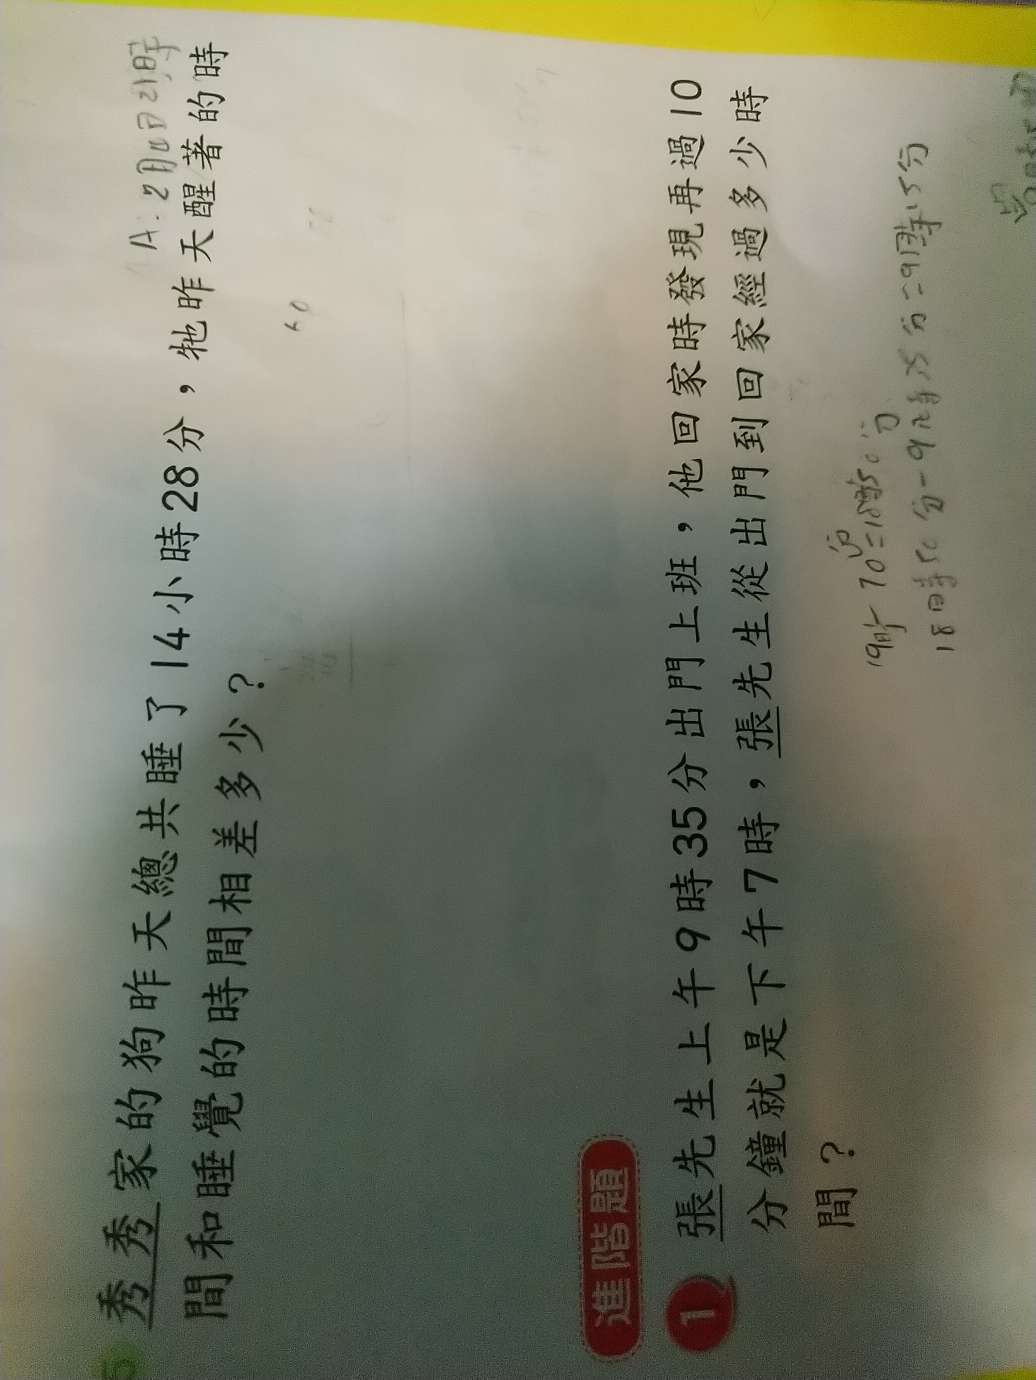 5
秀秀家的狗昨天總共睡了14小時28分，牠昨天醒著的時
間和睡覺的時間相差多少？
進階題
1 張先生上午9時35分出門上班，他回家時發現再過10
分鐘就是下午7時，張先生從出門到回家經過多少時
間？
18時50分-9時35分=9時15分